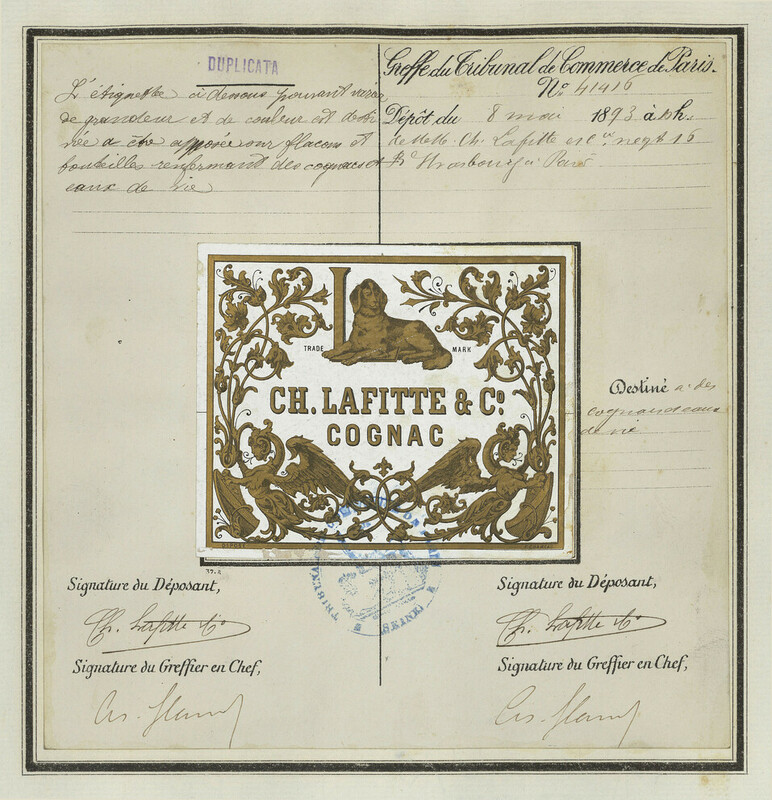 DUPLICATA
L'étiquette ci dessous pouvant varier
de grandeur et de couleur est desti
née à être apposée sur flacons et
bouteilles renfermant des cognacs et
eaux de vie
Greffe du Tribunal de Commerce de Paris.
No. 41416
Dépôt du 8 mai 1893 à
de MM. Ch. Lafitte et Cie negt 16
Bd Strasbourg à Paris
TRADE MARK
CH. LAFITTE & Co.
COGNAC
Destiné à des
cognacs et eaux
de vie
37.2
TRIBUNAL DE COMMERCE DE LA SEINE
DÉPOSÉ
Signature du Déposant,
Ch. Lafitte & Co
Signature du Greffier en Chef,
Signature du Déposant,
Ch. Lafitte & Co
Signature du Greffier en Chef,